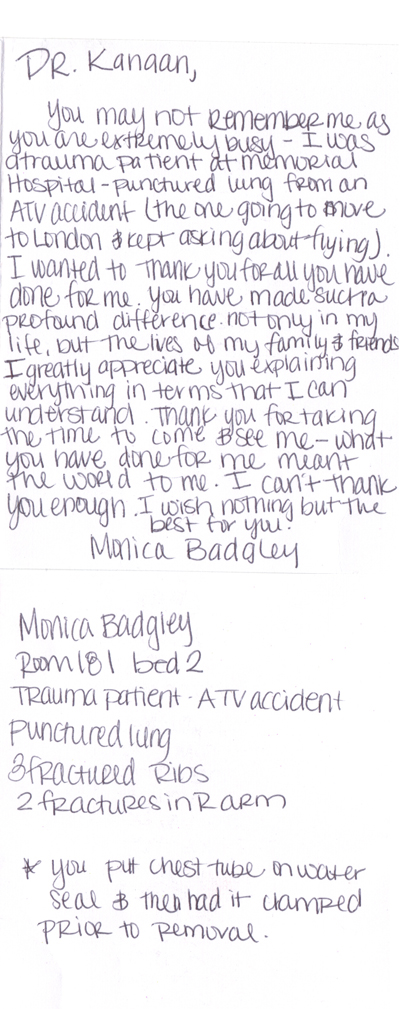 DR. Kanaan,
You may not remember me as
you are extremely busy - I was
a trauma patient at memorial
Hospital - punctured lung from an
ATV accident (the one going to move
to London & kept asking about flying).
I wanted to thank you for all you have
done for me. You have made such a
profound difference not only in my
life, but the lives of my family & friends
I greatly appreciate you explaining
everything in terms that I can
understand. Thank you for taking
the time to come & see me - what
you have done for me meant
the world to me. I can't thank
you enough. I wish nothing but the
best for you!
Monica Badgley
Monica Badgley
Room 181 bed 2
Trauma patient - ATV accident
Punctured lung
3 fractured Ribs
2 fractures in R arm
* you put chest tube on water
seal & then had it clamped
PRIOR to removal.